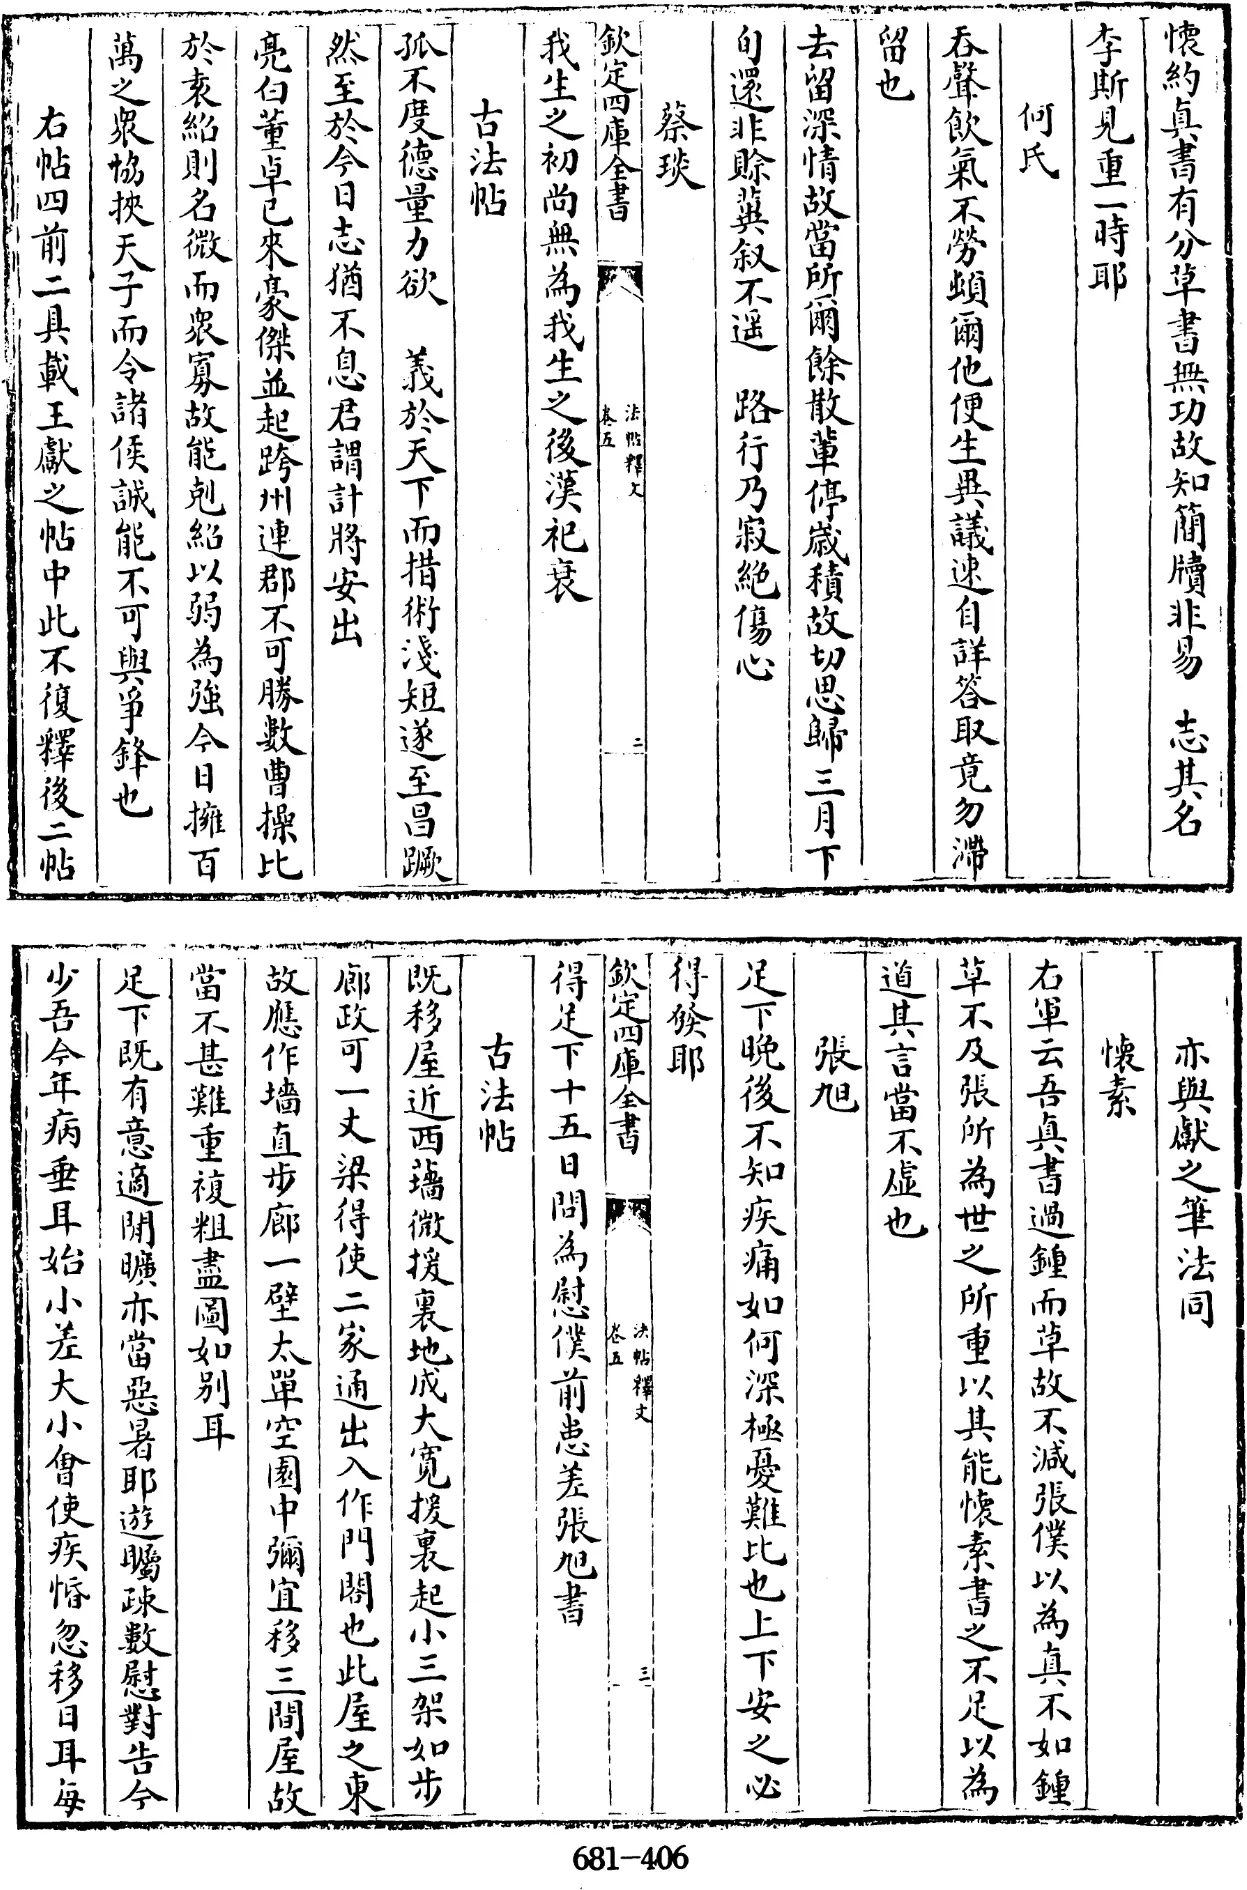 懷約真書有分草書無功故知簡牘非易 志其名
李斯見重一時耶
何氏
吞聲飲氣不勞頓爾他便生異議速自詳答取竟勿滯
留也
去留深情故當所爾餘散輩停歲積故切思歸三月下
旬還非賒冀叙不遥 路行乃寂絶傷心
蔡琰
欽定四庫全書
法帖釋文
卷五
二
我生之初尚無為我生之後漢祀衰
古法帖
孤不度德量力欲 義於天下而措術淺短遂至昌蹶
然至於今日志猶不息君謂計將安出
亮白董卓已來豪傑並起跨州連郡不可勝數曹操比
於袁紹則名微而衆寡故能剋紹以弱為強今日擁百
萬之衆協挾天子而令諸侯誠能不可與爭鋒也
右帖四前二具載王獻之帖中此不復釋後二帖
亦與獻之筆法同
懷素
右軍云吾真書過鍾而草故不減張僕以為真不如鍾
草不及張所為世之所重以其能懷素書之不足以為
道其言當不虚也
張旭
足下晚後不知疾痛如何深極憂難比也上下安之必
得發耶
欽定四庫全書
法帖釋文
卷五
三
得足下十五日問為慰僕前患差張旭書
古法帖
既移屋近西墻微援裏地成大寛援裏起小三架如步
廊政可一丈梁得使二家通出入作門閤也此屋之東
故應作墻直步廊一壁太單空園中彌宜移三間屋故
當不甚難重複粗盡圖如别耳
足下既有意適閒曠亦當惡暑耶遊矚疎數慰對告今
少吾今年病垂耳始小差大小會使疾惛忽移日耳每
681-406